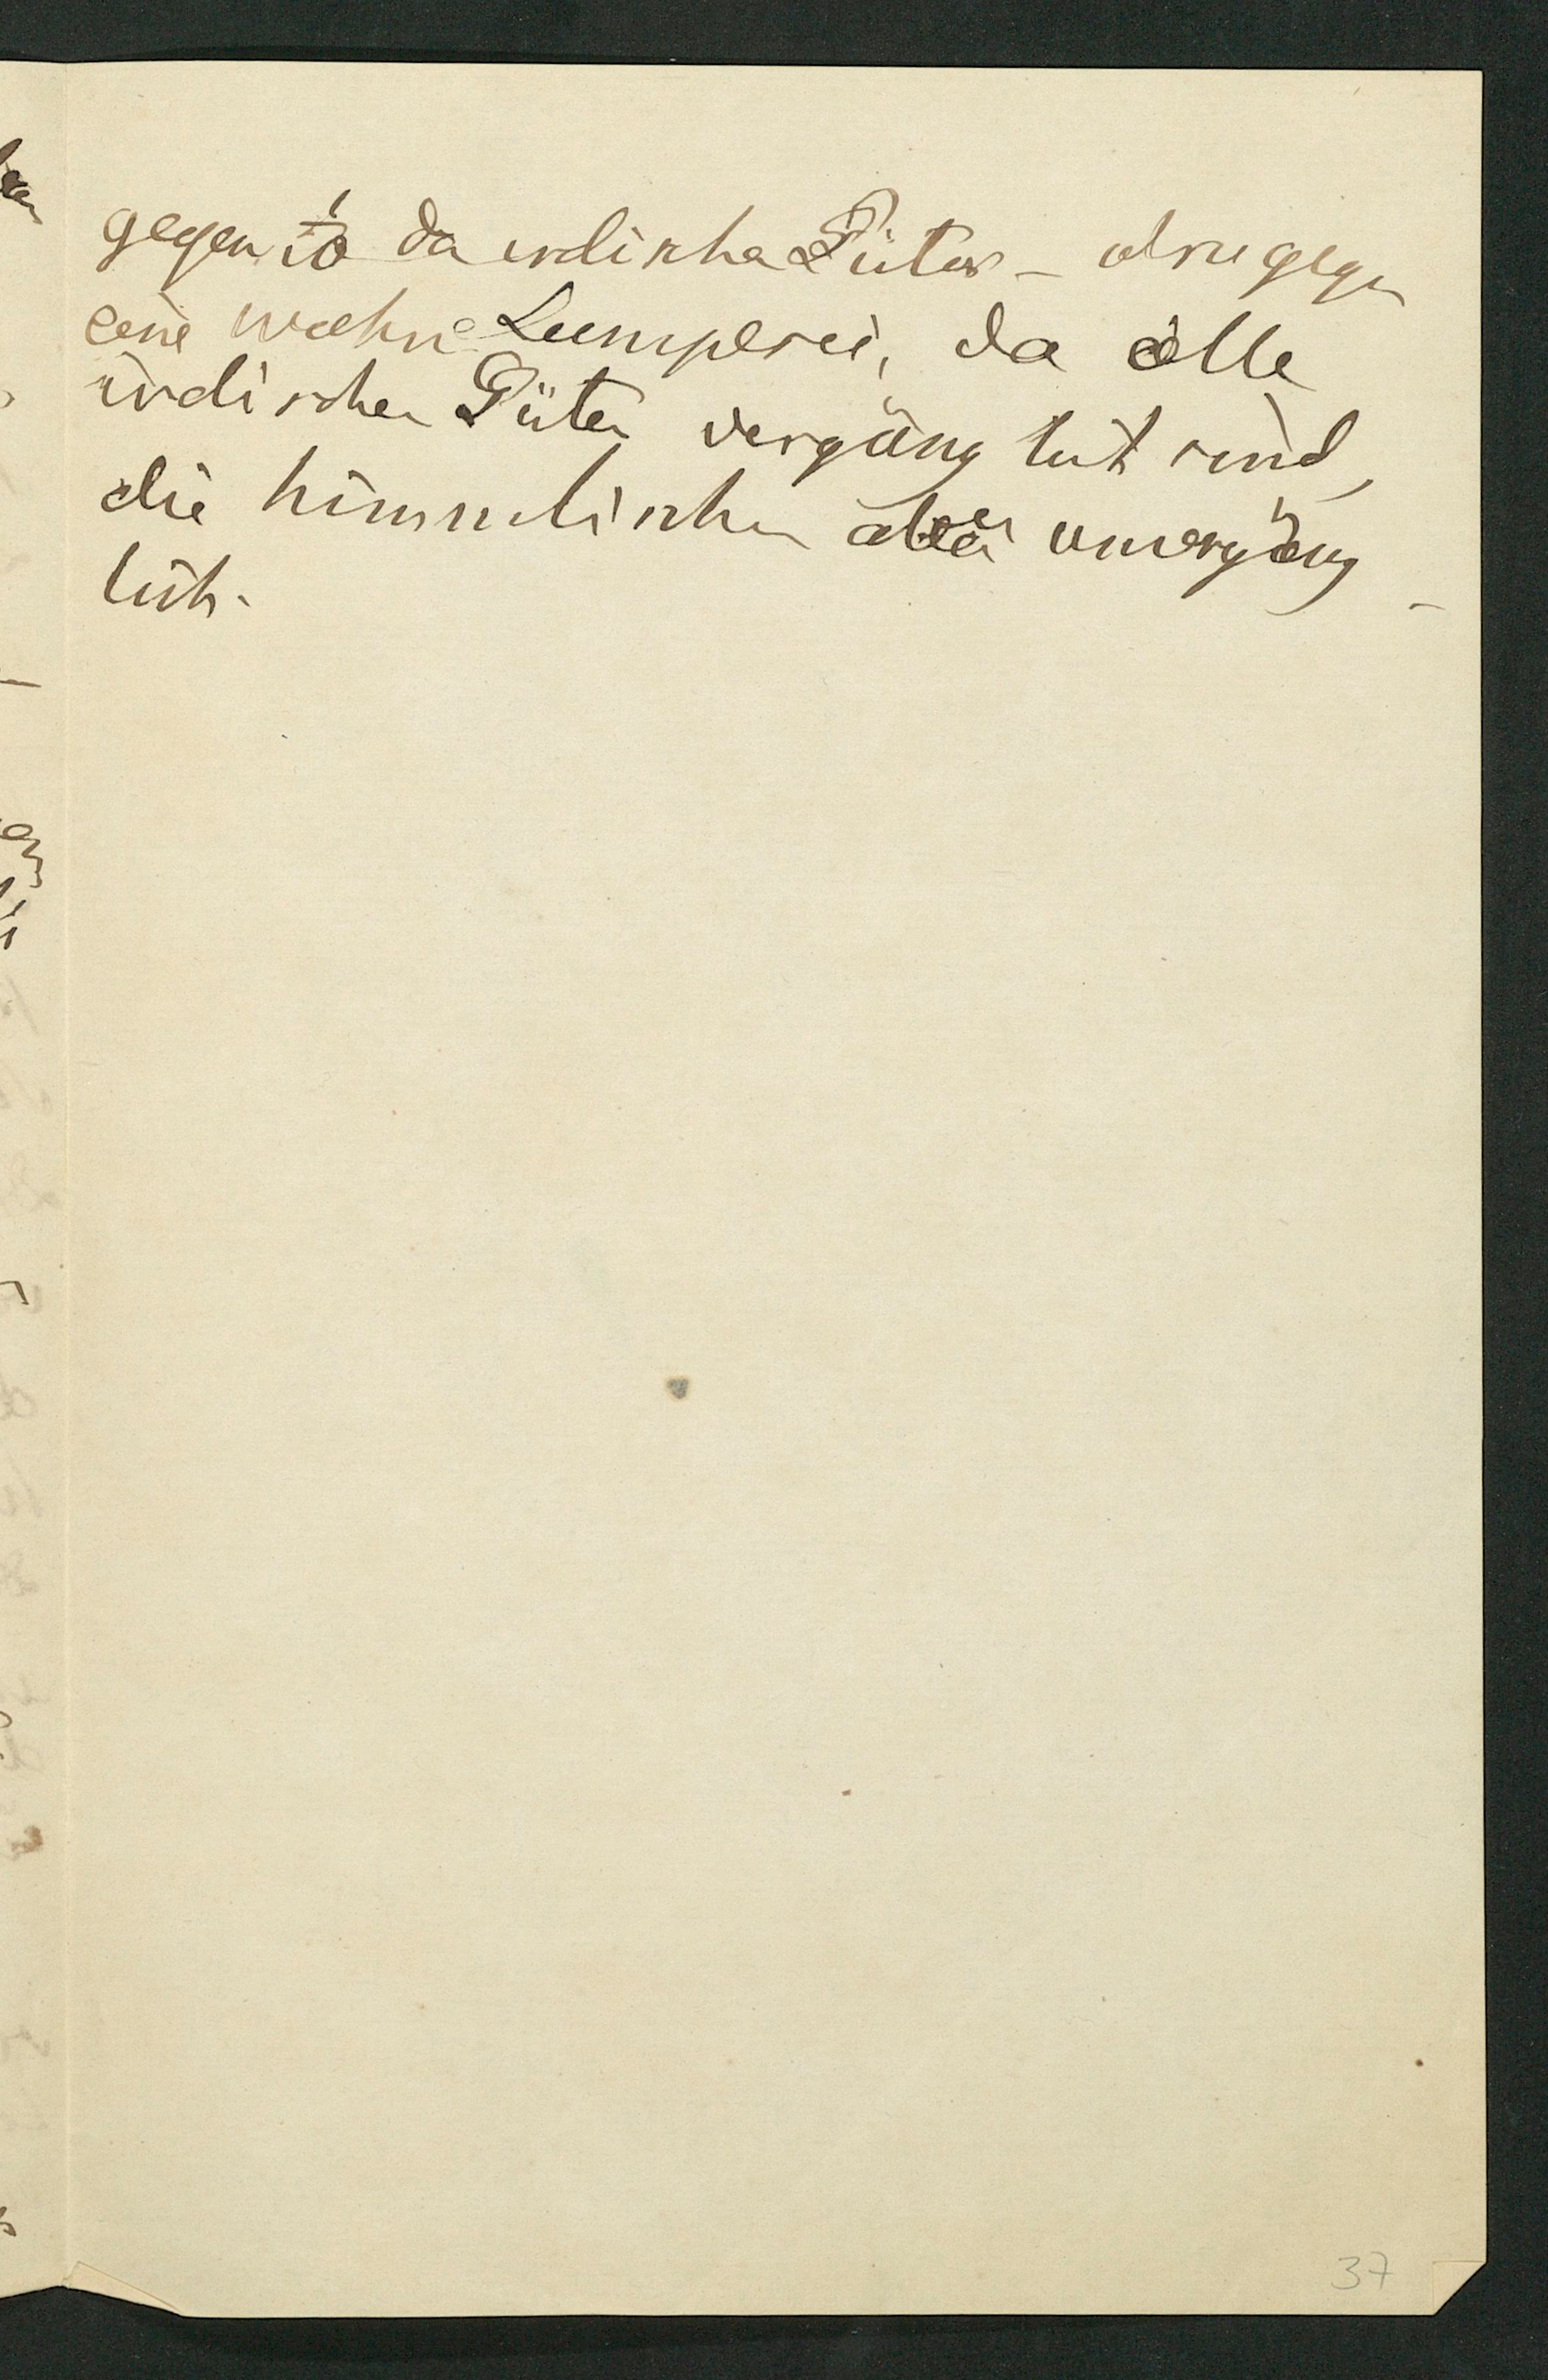 gegen 1/10 der irdischen Güter – also gegen
eine wahre Lumperei, da alle
irdischen Güter vergänglich sind,
die himmlischen aber unvergäng-
lich.
37